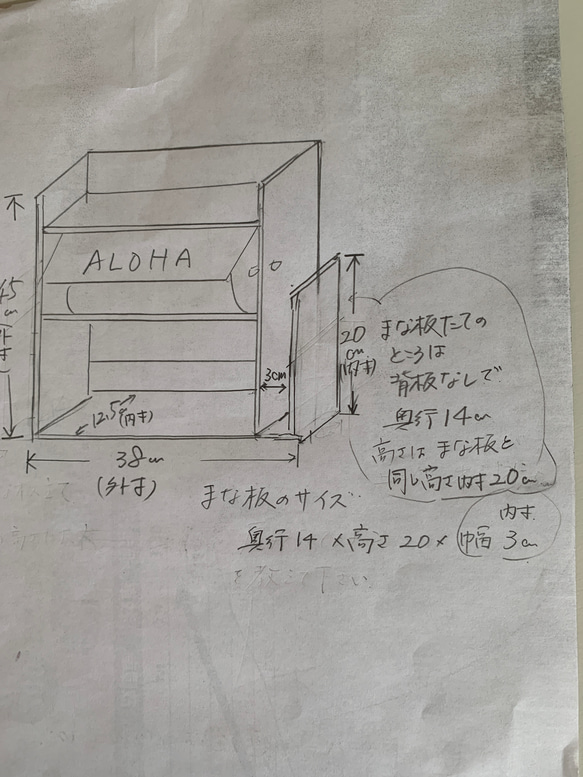 ALOHA
20
cm
(内寸)
3cm
12.5(内寸)
38cm
(外寸)
まな板たての
ところは
背板なしで
奥行14cm
高さはまな板と
同じ高さ内寸20cm
まな板のサイズ
内寸
奥行14×高さ20×幅3cm
を教えて下さい